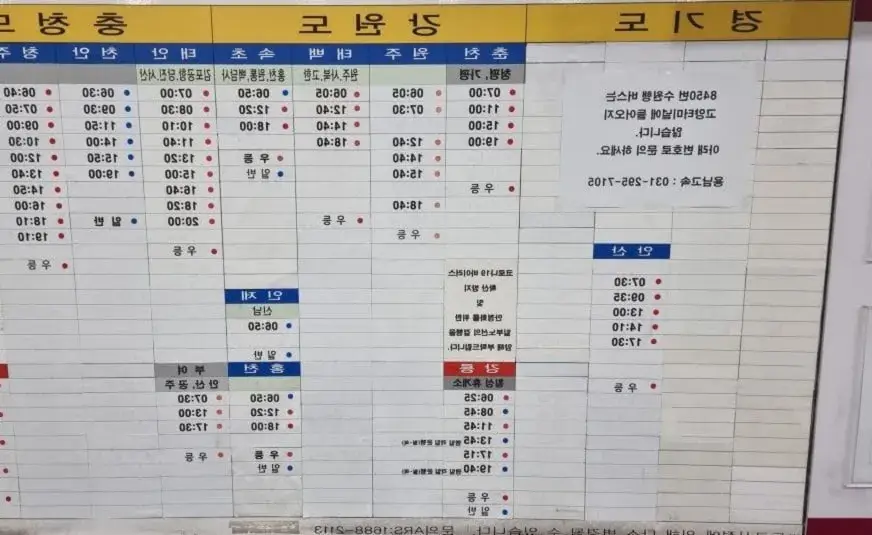 경기도 강원도 충청도
8450번 수원행 버스는
고양터미널에 들어오지
않습니다.
아래 번호로 문의 하세요.
용남고속 : 031-295-7105
안산
07:30
09:35
13:00
14:10
17:30
우등
춘천
청평, 가평
07:00
11:00
15:00
19:00
우등
코로나19 바이러스
확산 방지
및
안정화를 위한
일부노선의 결행을
양해 부탁드립니다.
강릉
횡성 휴게소
06:25
08:45
11:45
13:45
17:15
19:40
우등
일반
원주
06:05
07:30
12:40
14:40
15:40
18:40
우등
태백
원주,사북,고한
06:05
12:40
14:40
18:40
우등
속초
홍천,원통,백담사
06:50
12:20
18:00
우등
일반
인제
신남
06:50
일반
홍천
06:50
12:20
18:00
우등
일반
태안
김포공항,당진,서산
07:00
08:30
10:10
11:40
13:20
15:00
16:40
18:20
20:00
우등
부여
안산, 공주
07:30
13:00
17:30
우등
천안
06:30
09:30
11:50
14:00
15:50
19:00
일반
청주
06:40
07:50
09:00
10:30
12:00
13:40
14:50
16:00
18:10
19:10
우등
수 있습니다. 문의ARS:1688-2113